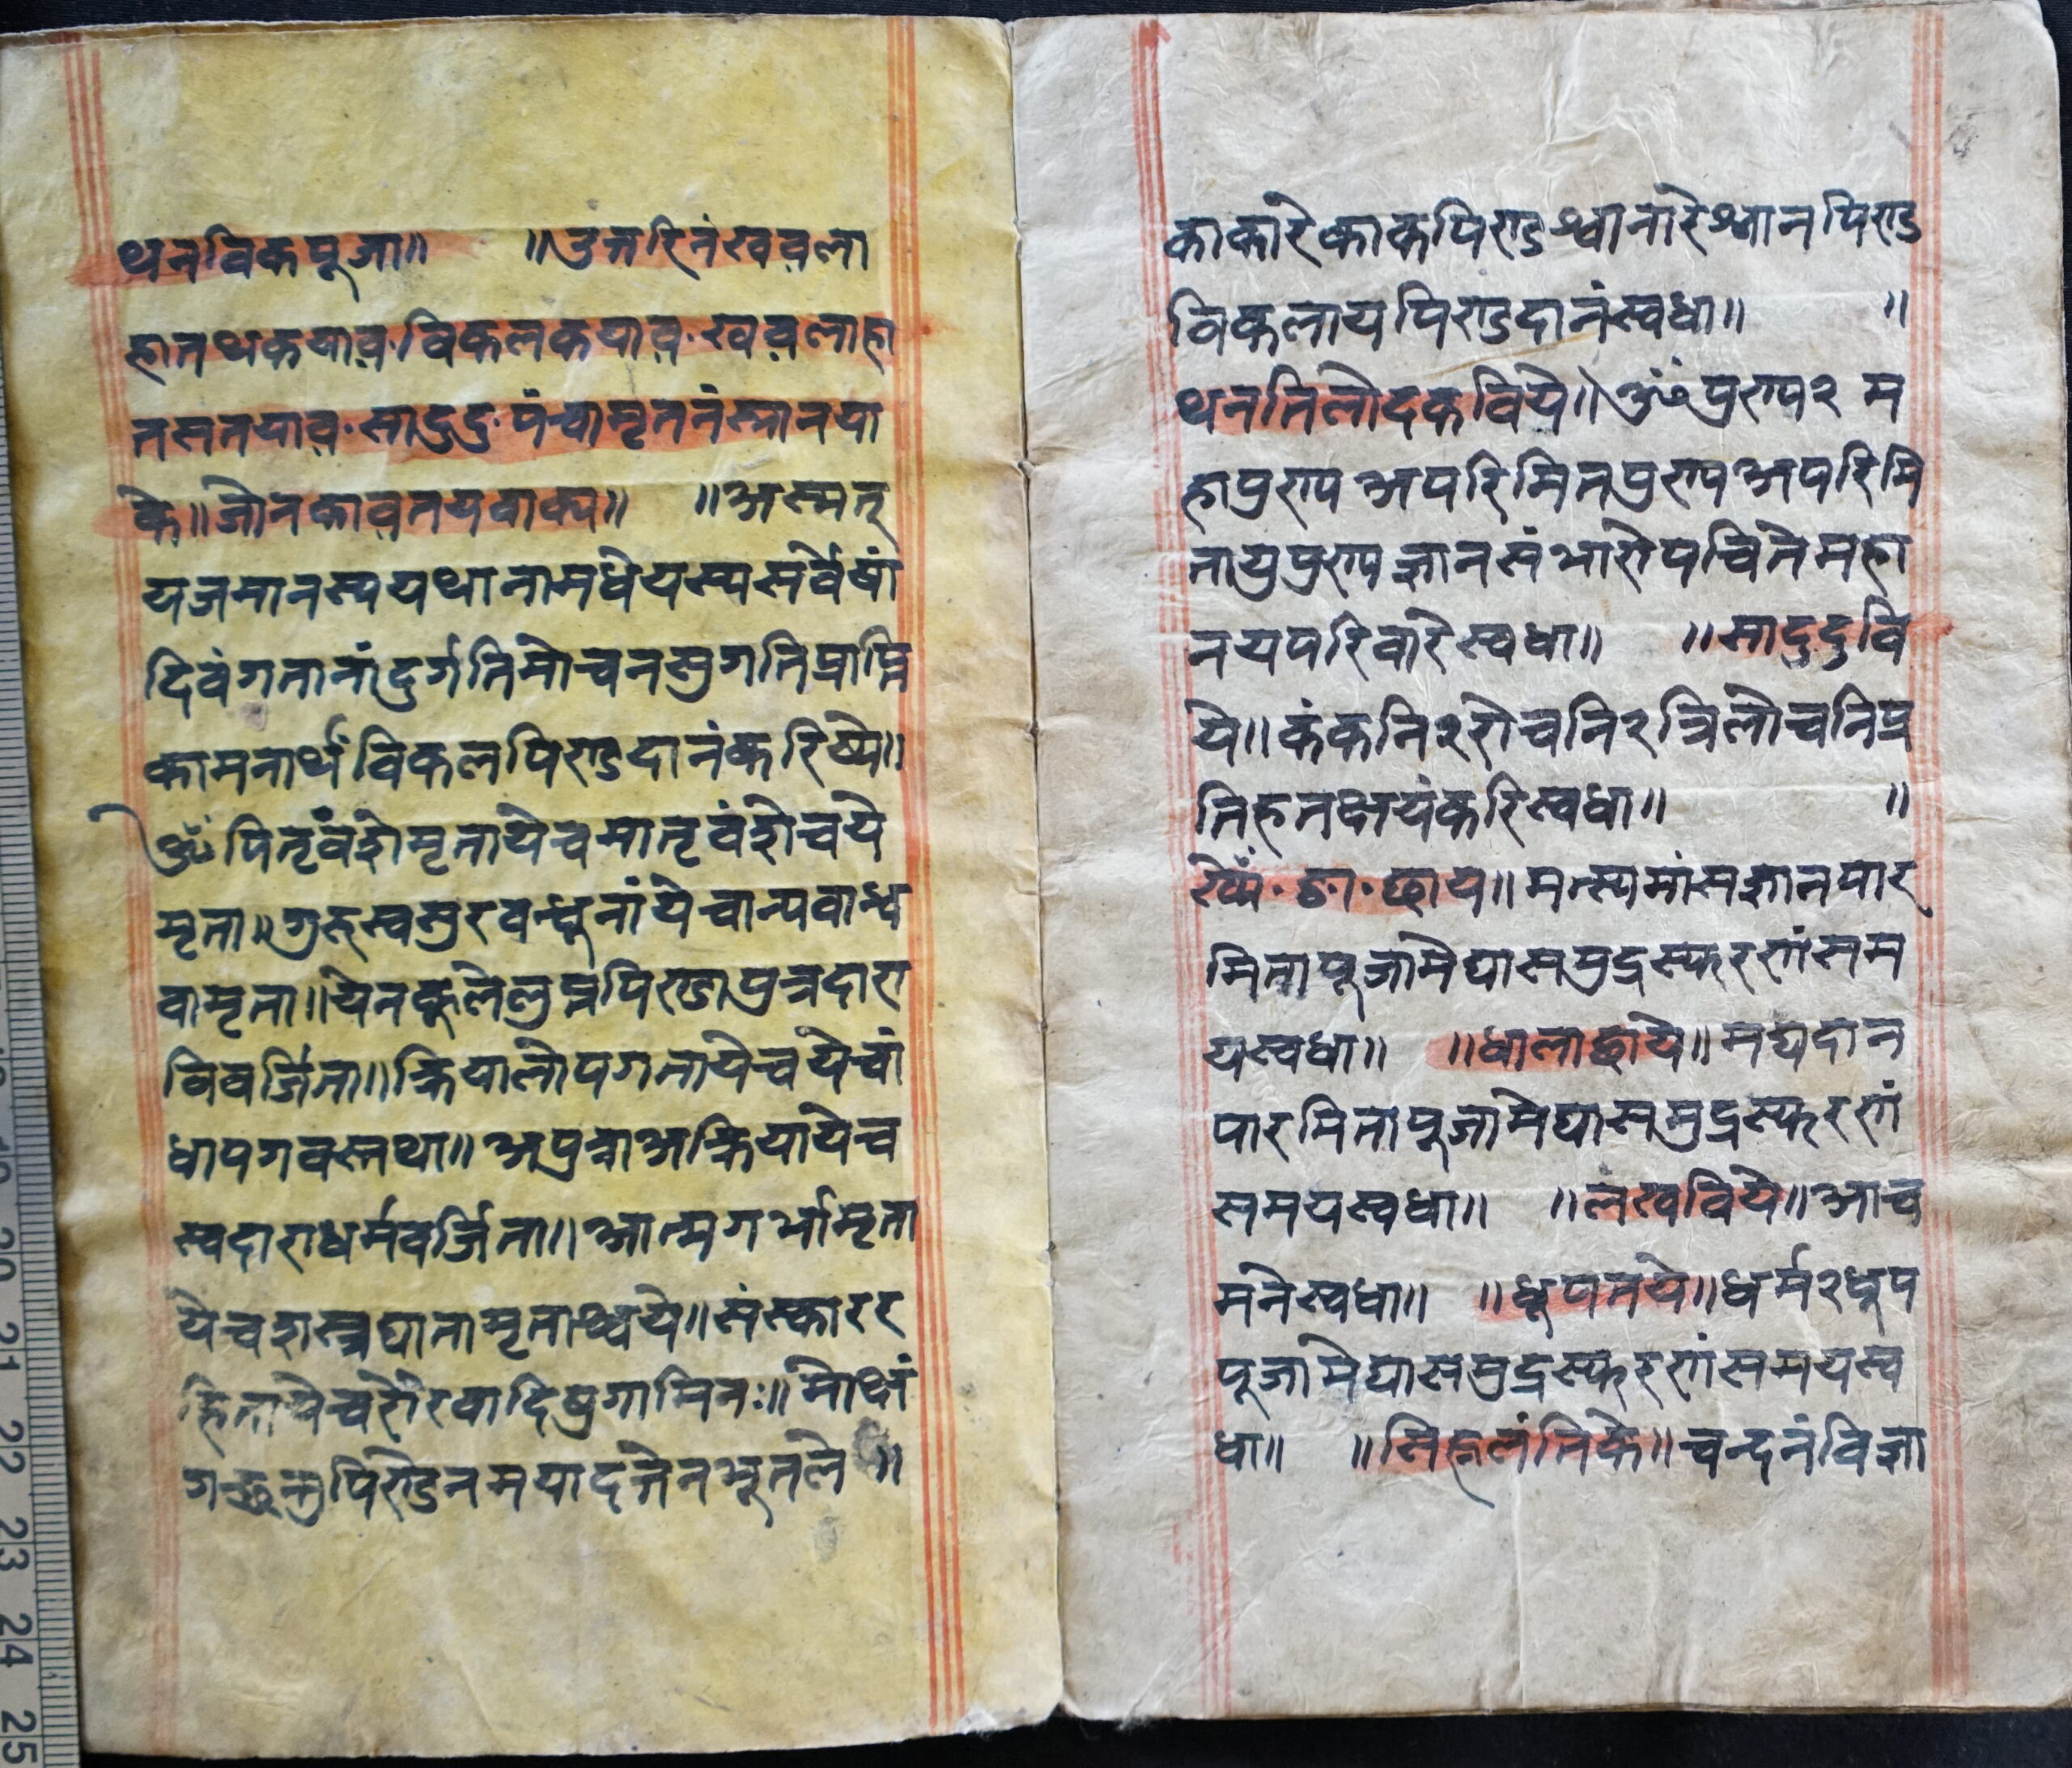 थनविकपूजा॥ ॥उत्तरिनंखवला
हातथकयाव·विकलकयाव·खवलाहा
तसतयाव·सादुदु·पंचामृतनंस्नानया
के॥जोनकावतयवाक्य॥ ॥अस्मत्
यजमानस्ययथानामधेयस्यसर्वेषां
दिवंगतानांदुर्गतिमोचनसुगतिप्राप्ति
कामनार्थंविकलपिण्डदानंकरिष्ये॥
ॐपितृवंशेमृतायेचमातृवंशेचये
मृता॥गुरुस्वसुरवन्धूनांयेचान्यवान्ध
वामृता॥येनकूलेलुप्तपिण्डापुत्रदारा
विवर्जिता॥क्रियालोपगतायेचयेचां
धापगवस्तथा॥अपुत्राअक्रियायेच
स्वदाराधर्मवर्जिता॥आत्मगर्भामृता
येचशस्त्रघातामृताश्चये॥संस्कारर
हितायेचरौरवादिषुगामिनः॥मोक्षं
गच्छन्तुपिण्डेनमयादत्तेनभूतले॥
काकारेकाकपिण्डश्वानारेश्वानपिण्ड
विकलायपिण्डदानंस्वधा॥ ॥
थनतिलोदकविये॥ॐपुण्य२म
हापुण्यअपरिमितपुण्यअपरिमि
तायुपुण्यज्ञानसंभारोपचितेमहा
नयपरिवारेस्वधा॥ ॥सादुदुवि
ये॥कंकनि२रोचनि२त्रिलोचनिप्र
तिहतक्षयंकरिस्वधा॥ ॥
छाय॥मत्स्यमांसज्ञानपार
मितापूजामेघासमुद्रस्फरणंसम
यस्वधा॥ ॥धालाछाये॥मद्यदान
पारमितापूजामेघासमुद्रस्फरणं
समयस्वधा॥ ॥लखविये॥आच
मनेस्वधा॥ ॥धूपनये॥धर्म२धूप
पूजामेघासमुद्रस्फरणंसमयस्व
धा॥ ॥सिह्लंतिके॥चन्दनंविज्ञा